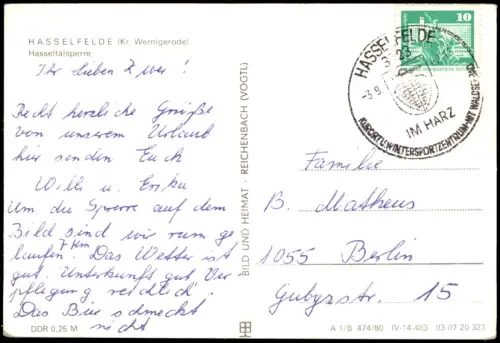 HASSELFELDE (Kr. Wernigerode)
Hasseltalsperre
Ihr lieben Zwei!
Recht herzliche Grüße
von unserem Urlaub
hier senden Euch
Willi u. Erika
Um die Sperre auf dem
Bild sind wir rum ge
laufen. 7 km Das Wetter ist
gut. Unterkunft gut. Ver
pflegung reichlich.
Das Bier schmeckt
nicht
DDR 0,25 M
BILD UND HEIMAT · REICHENBACH (VOGTL)
10
HASSELFELDE
IM HARZ
KURORT U. WINTERSPORTZENTRUM MIT
Familie
B. Matheus
1055 Berlin
Gubyzstr. 15
A 1/B 474/80 IV-14-483 03 07 20 323